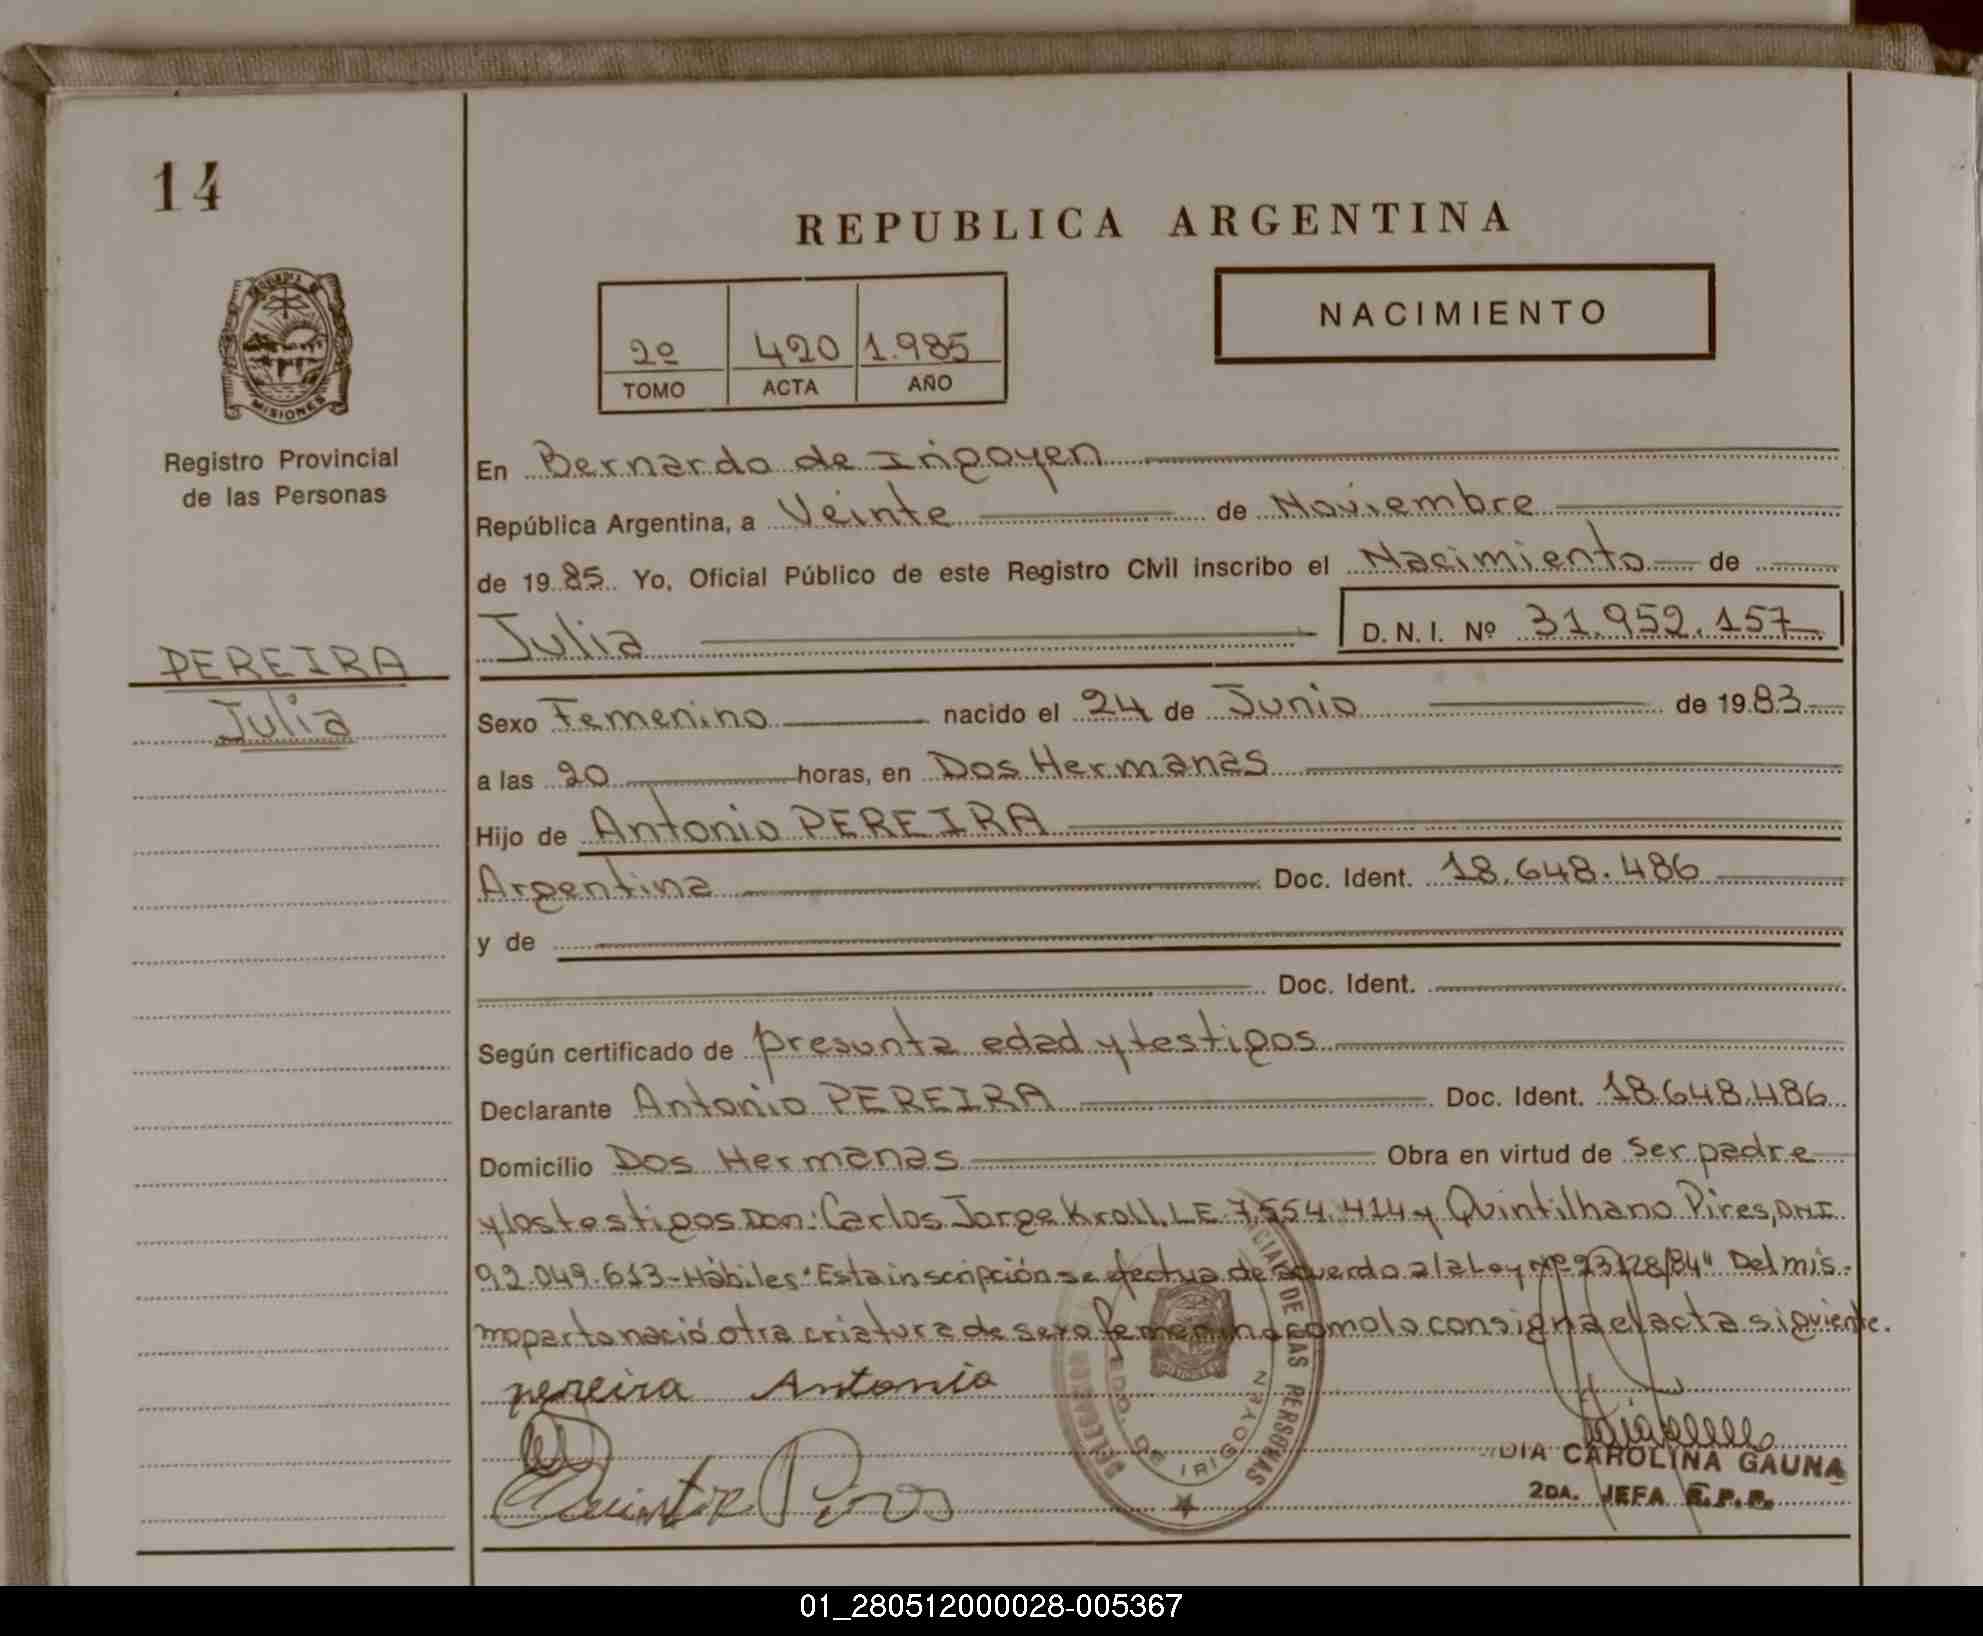 14
REPUBLICA ARGENTINA
NACIMIENTO
2º 420 1.985
TOMO ACTA AÑO
MISIONES
Registro Provincial
de las Personas
PEREIRA
Julia
En Bernardo de Irigoyen
República Argentina, a Veinte de Noviembre
de 1985 Yo, Oficial Público de este Registro Civil inscribo el Nacimiento de
Julia D. N. I. Nº 31.952.157
Sexo Femenino nacido el 24 de Junio de 1983
a las 20 horas, en Dos Hermanas
Hijo de Antonio PEREIRA
Argentina Doc. Ident. 18.648.486
y de
Doc. Ident.
Según certificado de presunta edad y testigos
Declarante Antonio PEREIRA Doc. Ident. 18.648.486
Domicilio Dos Hermanas Obra en virtud de ser padre
y los testigos Don: Carlos Jorge Kroll, LE 7.554.414 y Quintilhano Pires, DNI
92.049.613-Hábiles "Esta inscripción se efectua de acuerdo a la Ley Nº 23128/84" Del mis-
mo parto nació otra criatura de sexo femenino como lo consigna el acta siguiente.
pereira Antonio
DE LAS PERSONAS
BDO. DE IRIGOYEN
DIA CAROLINA GAUNA
2DA. JEFA R.P.P.
01_280512000028-005367